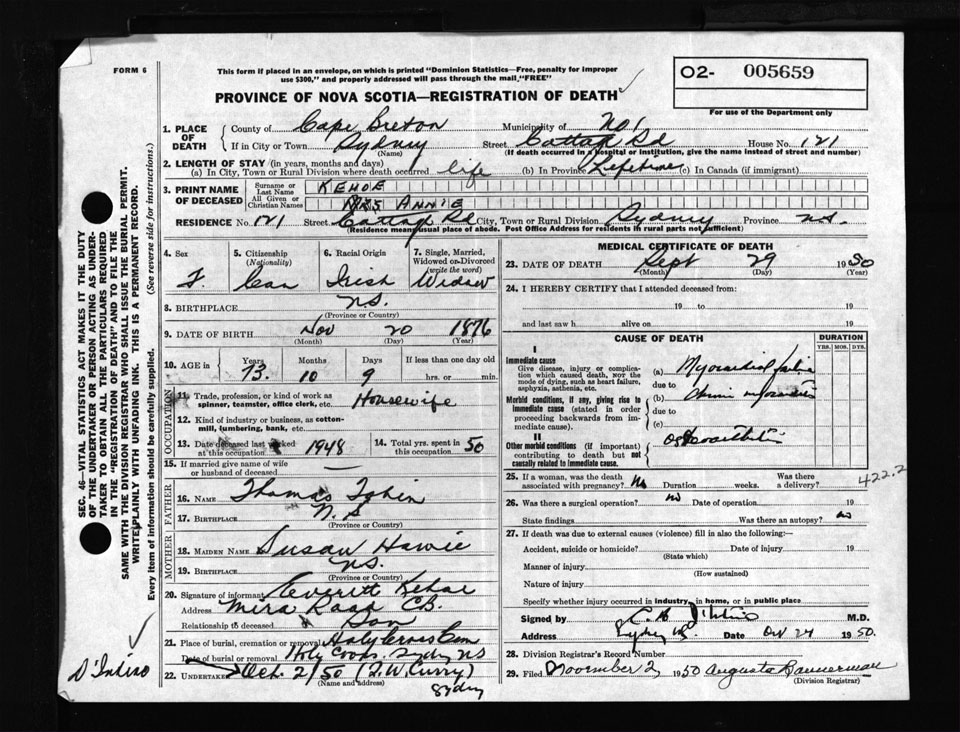 FORM 6
This form if placed in an envelope, on which is printed "Dominion Statistics—Free, penalty for improper
use $300," and properly addressed will pass through the mail, "FREE"
O2- 005659
PROVINCE OF NOVA SCOTIA—REGISTRATION OF DEATH
For use of the Department only
1. PLACE OF DEATH { County of Cape Breton Municipality of No 1
If in City or Town Sydney (Name) Street Cottage Rd House No. 121
(If death occurred in a hospital or institution, give the name instead of street and number)
2. LENGTH OF STAY (in years, months and days)
(a) In City, Town or Rural Division where death occurred life (b) In Province Lifetime (c) In Canada (if immigrant)
3. PRINT NAME OF DECEASED { Surname or Last Name KEHOE
All Given or Christian Names MRS ANNIE
RESIDENCE No. 121 Street Cottage Rd City, Town or Rural Division Sydney Province N.S.
(Residence means usual place of abode. Post Office Address for residents in rural parts not sufficient)
4. Sex F.
5. Citizenship (Nationality) Can
6. Racial Origin Irish
7. Single, Married, Widowed or Divorced (write the word) Widow
8. BIRTHPLACE N.S. (Province or Country)
9. DATE OF BIRTH Nov 20 1876
(Month) (Day) (Year)
10. AGE in { Years 73 Months 10 Days 9 If less than one day old hrs. or min.
OCCUPATION
11. Trade, profession, or kind of work as spinner, teamster, office clerk, etc. Housewife
12. Kind of industry or business, as cotton-mill, lumbering, bank, etc.
13. Date deceased last worked at this occupation 1948
14. Total yrs. spent in this occupation 50
15. If married give name of wife or husband of deceased —
FATHER
16. NAME Thomas Tobin
17. BIRTHPLACE N.S (Province or Country)
MOTHER
18. MAIDEN NAME Susan Howie
19. BIRTHPLACE N.S. (Province or Country)
20. Signature of informant Everitt Kehoe
Address Mira Road C.B.
Relationship to deceased Son
21. Place of burial, cremation or removal Holy Cross Cem
Date of burial or removal Holy Cross. Sydney NS
22. UNDERTAKER Oct. 2/50 (T. W. Curry)
(Name and address) Sydney
MEDICAL CERTIFICATE OF DEATH
23. DATE OF DEATH Sept 29 1950
(Month) (Day) (Year)
24. I HEREBY CERTIFY that I attended deceased from:
19 to 19
and last saw h alive on 19
CAUSE OF DEATH
DURATION
YRS. MOS. DYS.
I
Immediate cause
Give disease, injury or complication which caused death, NOT the mode of dying, such as heart failure, asphyxia, asthenia, etc.
(a) Myocardial failure
due to
Morbid conditions, if any, giving rise to immediate cause (stated in order proceeding backwards from immediate cause).
(b) Chronic myocarditis
due to
(c)
II
Other morbid conditions (if important) contributing to death but not causally related to immediate cause.
Osteoarthritis
25. If a woman, was the death associated with pregnancy? No Duration weeks. Was there a delivery?
422.2
26. Was there a surgical operation? no Date of operation 19
State findings Was there an autopsy? no
27. If death was due to external causes (violence) fill in also the following:—
Accident, suicide or homicide? Date of injury 19
(State which)
Manner of injury
(How sustained)
Nature of injury
Specify whether injury occurred in industry, in home, or in public place
Signed by M.D.
Address Sydney NS Date Oct 24 1950.
28. Division Registrar's Record Number
29. Filed November 2, 1950 Augusta Bannerman
(Division Registrar)
SEC. 46—VITAL STATISTICS ACT MAKES IT THE DUTY
OF THE UNDERTAKER OR PERSON ACTING AS UNDER-
TAKER TO OBTAIN ALL THE PARTICULARS REQUIRED
IN THE "REGISTRATION OF DEATH" AND TO FILE THE
SAME WITH THE DIVISION REGISTRAR WHO SHALL ISSUE THE BURIAL PERMIT.
WRITE PLAINLY WITH UNFADING INK. THIS IS A PERMANENT RECORD.
Every item of information should be carefully supplied. (See reverse side for instructions.)
D'Intino